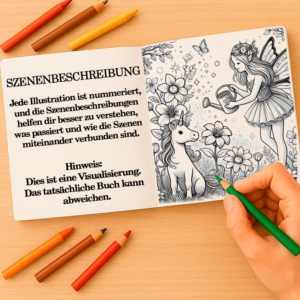 SZENENBESCHREIBUNG
Jede Illustration ist nummeriert,
und die Szenenbeschreibungen
helfen dir besser zu verstehen,
was passiert und wie die Szenen
miteinander verbunden sind.
Hinweis:
Dies ist eine Visualisierung.
Das tatsächliche Buch kann
abweichen.